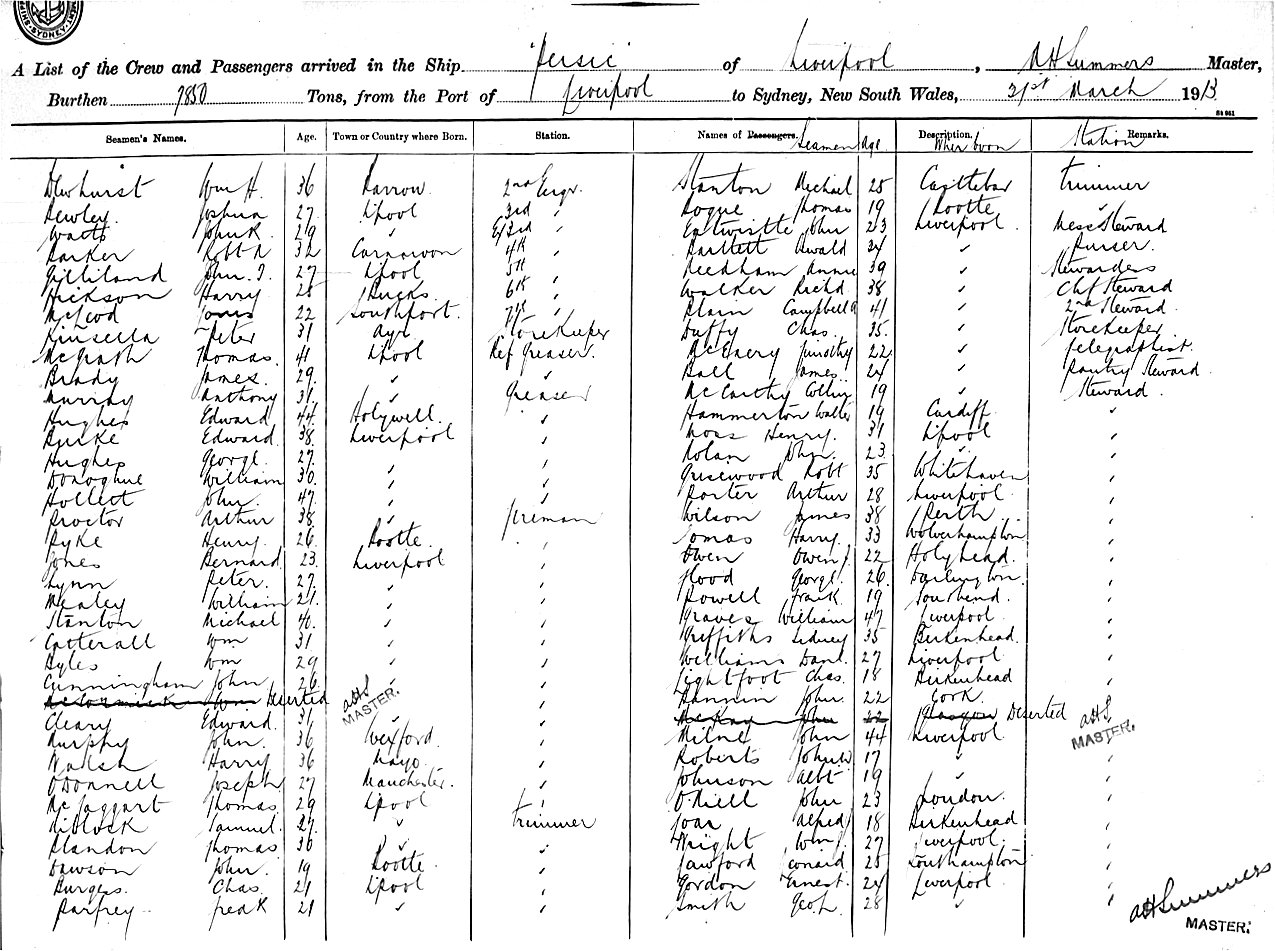 SYDNEY
A List of the Crew and Passengers arrived in the Ship "Persic" of Liverpool, AH Summers Master,
Burthen 7850 Tons, from the Port of Liverpool to Sydney, New South Wales, 21st March 1913
Seamen's Names. Age. Town or Country where Born. Station. Names of Passengers. Seamen Age Description. Wher born Station Remarks.
Dewhurst Wm H. 36 Barrow. 2nd Engr. Stanton Michael 25 Castlebar trimmer
Bewley. Joshua 27. L'pool 3rd " Bogue Thomas 19 Bootle "
Watts John R. 29 " E/3rd " Entwistle John 23 Liverpool Mess Steward
Parker Robt A 32 Carnarvon 4th " Bartlett Oswald 34 " Purser.
Gilliland John. T. 27 L'pool 5th " Needham Annie 39 " Stewardess
Hickson Harry 28 Bucks 6th " Walker Richd 38 " Chf Steward
McLeod Jones 22 Southport. 7th " Plain Campbell A 41 " 2nd Steward.
Kinsella Peter 31 Ayr Storekeeper Duffy Chas. 35. " Storekeeper
McGrath Thomas. 41 L'pool Ref Greaser. McEnery Timothy 22 " Telegraphist.
Brady James. 29. " " Ball James 24 " Pantry Steward.
Murray Anthony 31. " Greaser McCarthy Collin 19 " Steward.
Hughes Edward 44. Holywell. " Hammerton Walter 19 Cardiff "
Burke Edward. 38. Liverpool " Moss Henry. 31 L'pool "
Hughes George. 27. " " Nolan John. 23 " "
Donoghue William 30. " " Grisewood Robt 35 Whitehaven "
Hollett John. 47. " " Porter Arthur 28 Liverpool "
Proctor Arthur 38. " fireman Wilson James 38 Perth "
Pyke Henry. 26 Bootle. " Tomas Harry. 33 Wolverhampton "
Jones Bernard. 23. Liverpool " Owen Owen J 22 Holyhead. "
Lynn Peter. 27. " " Hood George. 26. Darlington. "
Mealey William 21. " " Powell Frank. 19 Southend. "
Stanton Michael 40. " " Graves William 47 Liverpool "
Catterall Wm 31. " " Griffiths Sidney 35 Birkenhead. "
Byles Wm 29 " " Williams Danl. 27 Liverpool "
Cunningham John 26 " " Lightfoot Chas. 18 Birkenhead "
McCormick Wm Deserted AHS MASTER. " Bannin John. 22 Cork "
Cleary Edward. 31. " " McKay John 22 Glasgow Deserted AHS MASTER.
Murphy John. 36 Wexford. " Milne John 44 Liverpool "
Walsh Harry 36 Mayo. " Roberts John W 17 " "
O'Donnell Joseph 27 Manchester. " Johnson Albt 19 " "
McTaggart Thomas 29 L'pool " O'Niell John 23 London. "
Niblock Samuel. 27. " trimmer Joan Alfred 18 Birkenhead "
Blandon Thomas 36 " " Wright Wm J 27 Liverpool. "
Dawson John. 19 Bootle. " Lawford Leonard 25 Southampton "
Burgess. Chas. 21 L'pool " Gordon Ernest. 24 Liverpool "
Parfrey Fredk 21 " " Smith Geo. L. 28 " "
AH Summers
MASTER.